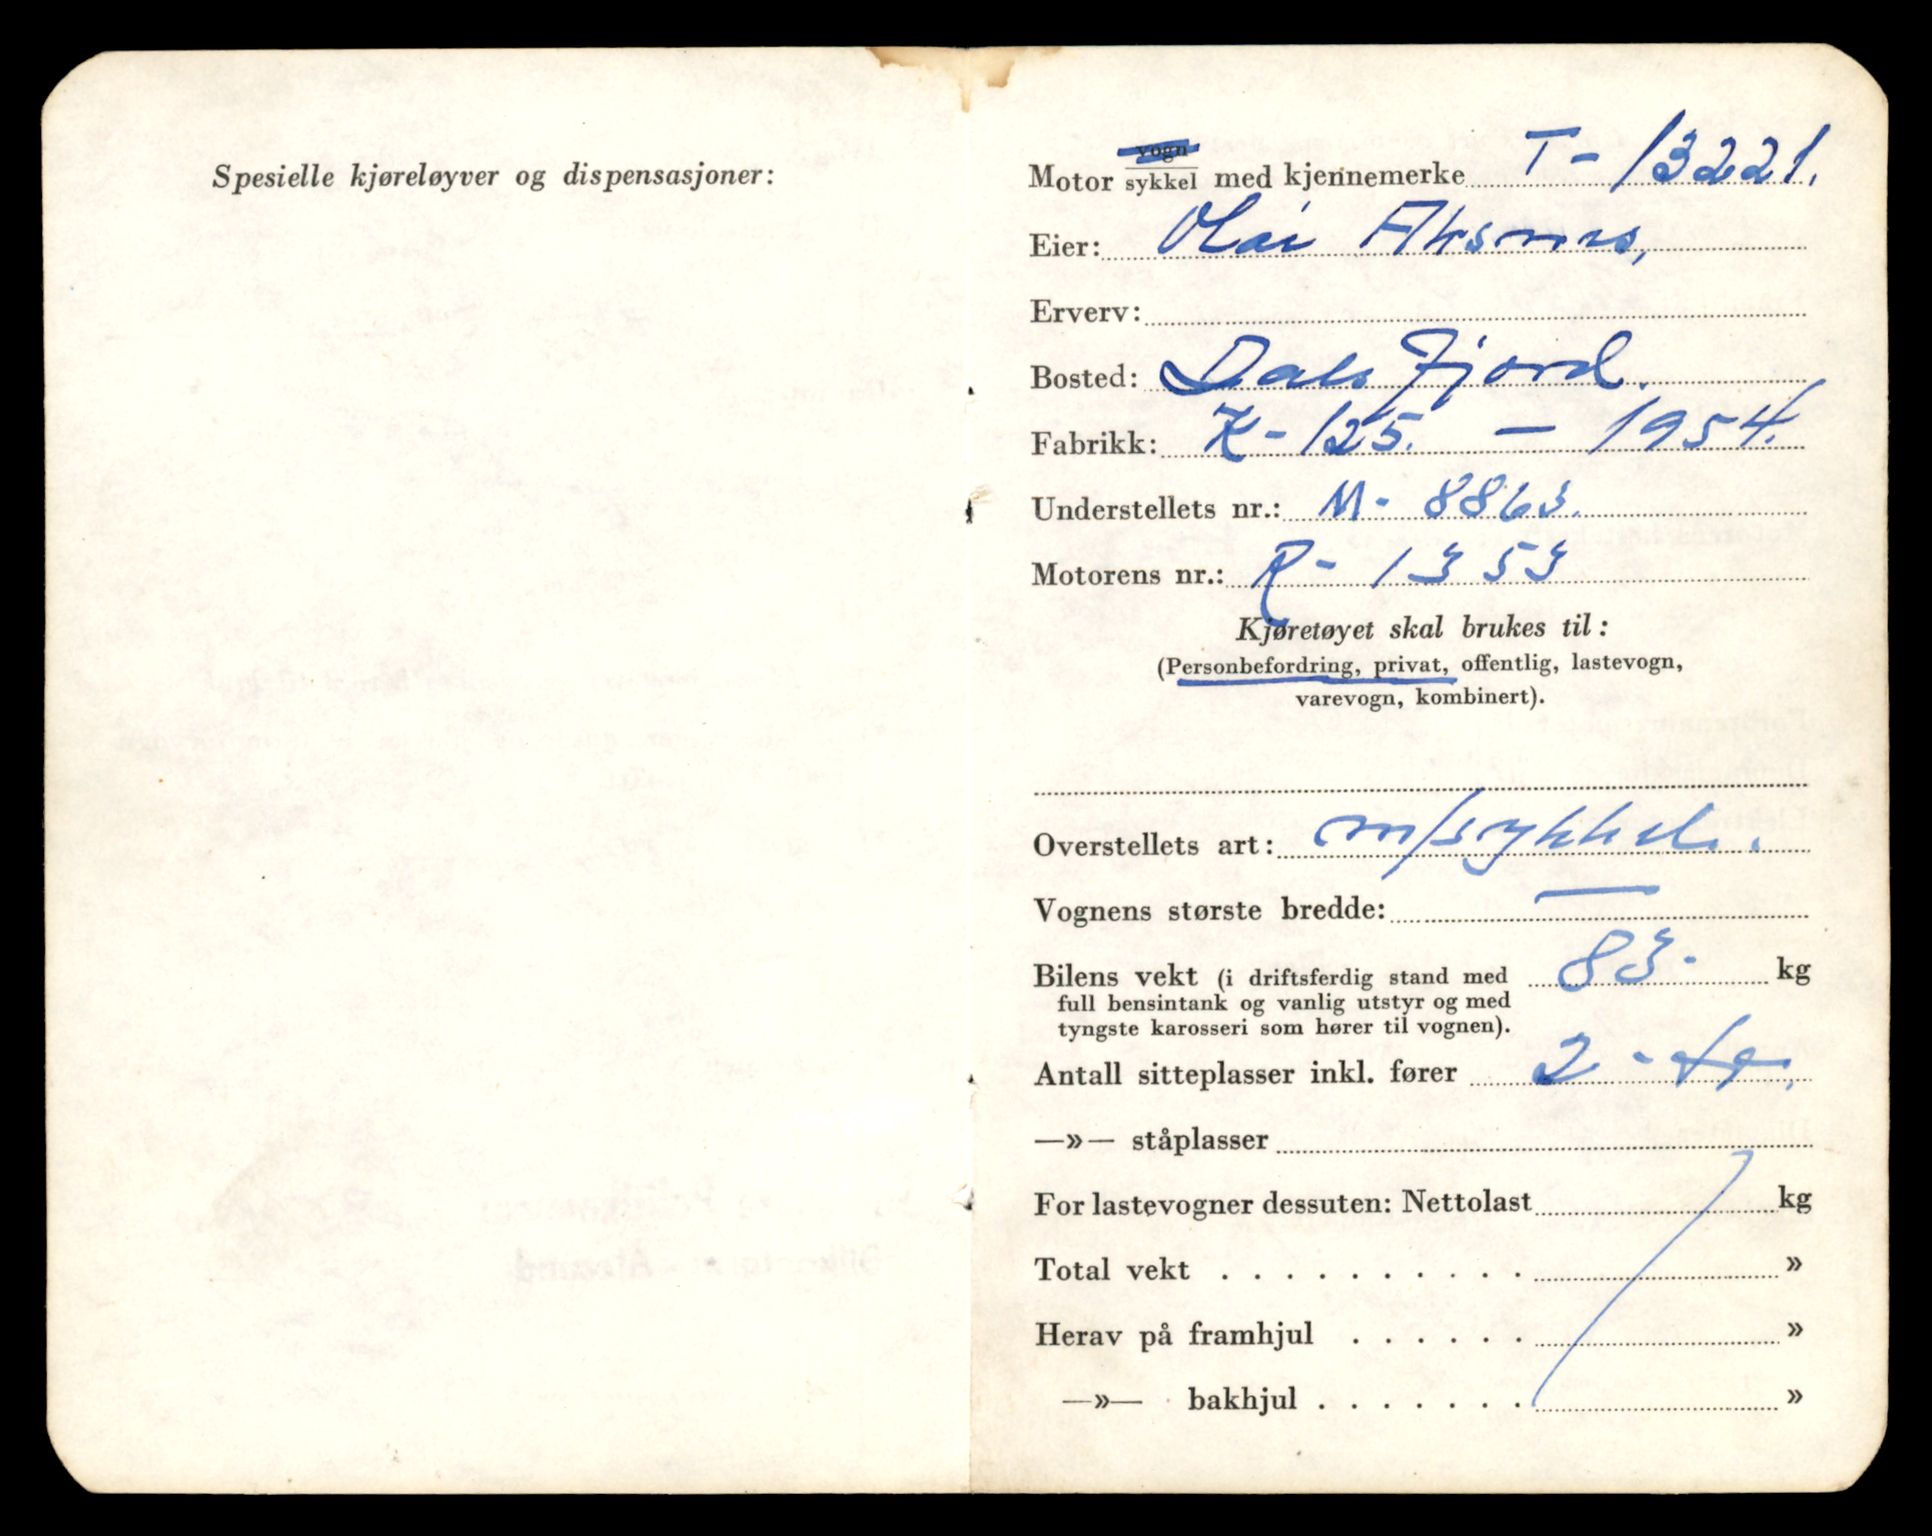 Spesielle kjøreløyver og dispensasjoner:
Motor vogn/sykkel med kjennemerke T-13221.
Eier: Olai Aksnes,
Erverv:
Bosted: Dalsfjord.
Fabrikk: K-125. — 1954.
Understellets nr.: M- 8863.
Motorens nr.: R- 1353
Kjøretøyet skal brukes til:
(Personbefordring, privat, offentlig, lastevogn,
varevogn, kombinert).
Overstellets art: m/sykkel.
Vognens største bredde: —
Bilens vekt (i driftsferdig stand med 83- kg
full bensintank og vanlig utstyr og med
tyngste karosseri som hører til vognen).
Antall sitteplasser inkl. fører 2 -
—»— ståplasser
For lastevogner dessuten: Nettolast kg
Total vekt . . . . . . . . . . »
Herav på framhjul . . . . . . »
—»— bakhjul . . . . . . . »